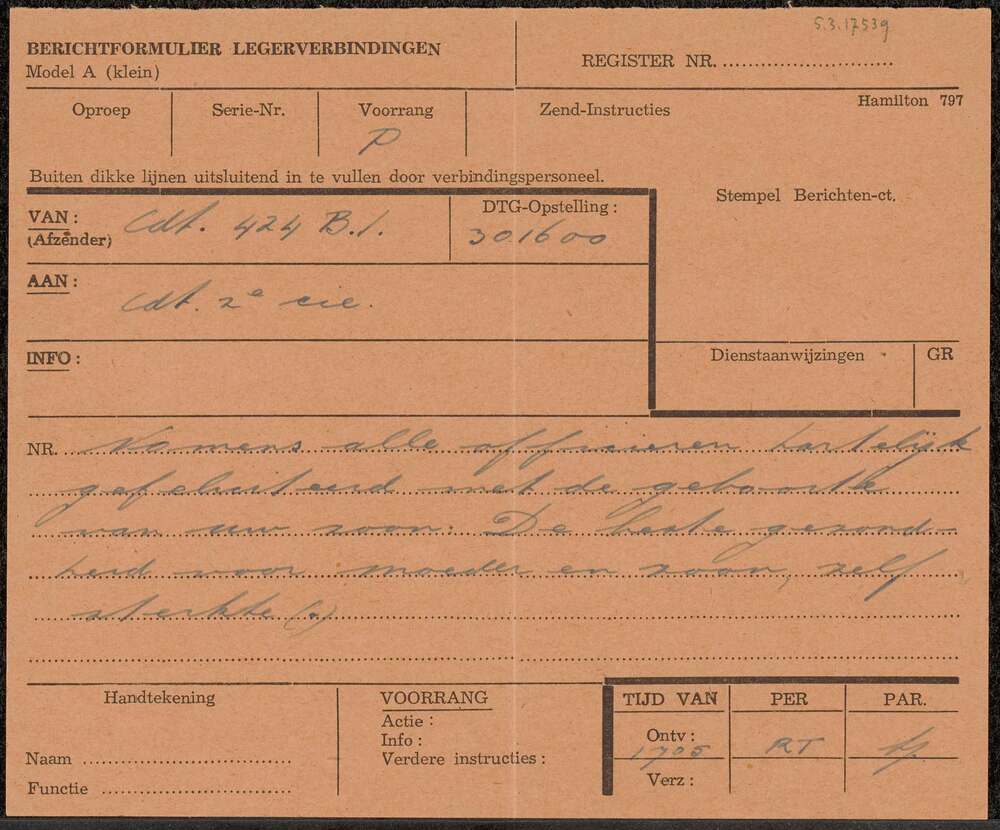 5.3.17539
BERICHTFORMULIER LEGERVERBINDINGEN
Model A (klein)
REGISTER NR.
Oproep Serie-Nr. Voorrang Zend-Instructies Hamilton 797
P
Buiten dikke lijnen uitsluitend in te vullen door verbindingspersoneel.
Stempel Berichten-ct.
VAN: Cdt. 424 B.I. DTG-Opstelling:
(Afzender) 301600
AAN: Cdt. 2e cie.
INFO: Dienstaanwijzingen GR
NR. Namens alle officieren hartelijk
gefeliciteerd met de geboorte
van uw zoon. De beste gezond-
heid voor moeder en zoon, zelf
sterkte (.)
Handtekening VOORRANG TIJD VAN PER PAR.
Actie:
Info: Ontv:
Naam Verdere instructies: 1705 RT
Verz:
Functie